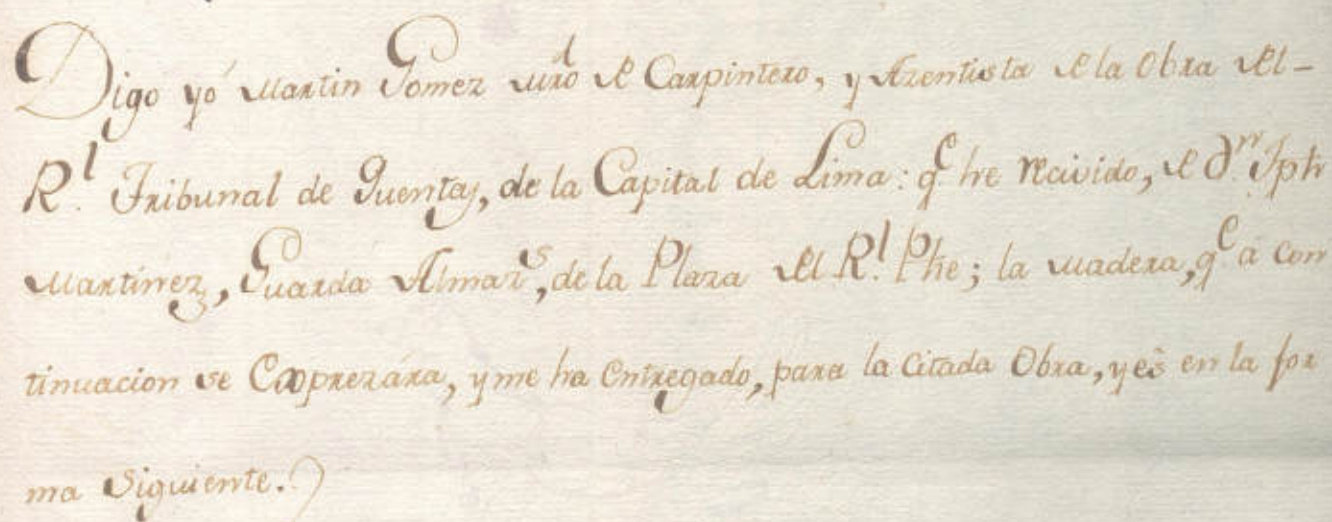 Digo yo Martin Gomez mro de Carpintero, y Asentista de la Obra del-
R.l Tribunal de Quentas, de la Capital de Lima: q.e he recivido, de d.n Jph
Martinez, Guarda Almaz.s, de la Plaza del R.l Phe; la madera, q.e á con
tinuacion se Exprezára, y me ha entregado, para la Citada Obra, y es en la for
ma Siguiente.